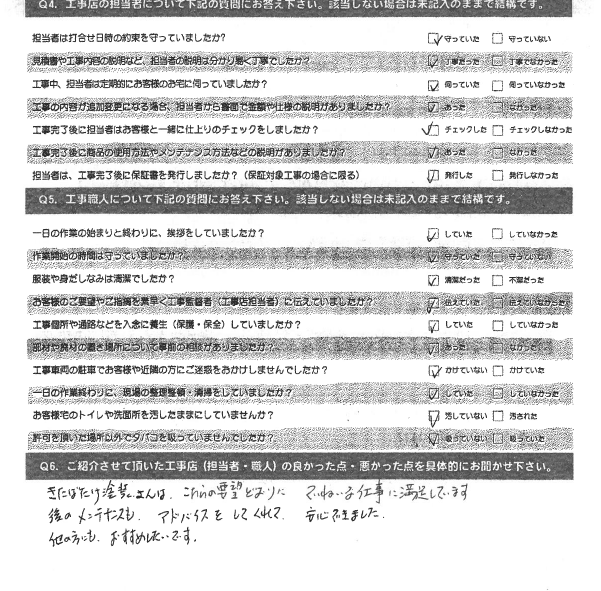 Q4. 工事店の担当者について下記の質問にお答え下さい。該当しない場合は未記入のままで結構です。
担当者は打合せ日時の約束を守っていましたか？ 守っていた 守っていない
見積書や工事内容の説明など、担当者の説明は分かり易く丁寧でしたか？ 丁寧だった 丁寧でなかった
工事中、担当者は定期的にお客様のお宅に伺っていましたか？ 伺っていた 伺っていなかった
工事の内容が追加変更になる場合、担当者から書面で金額や仕様の説明がありましたか？ あった なかった
工事完了後に担当者はお客様と一緒に仕上りのチェックをしましたか？ チェックした チェックしなかった
工事完了後に商品の使用方法やメンテナンス方法などの説明がありましたか？ あった なかった
担当者は、工事完了後に保証書を発行しましたか？（保証対象工事の場合に限る） 発行した 発行しなかった
Q5. 工事職人について下記の質問にお答え下さい。該当しない場合は未記入のままで結構です。
一日の作業の始まりと終わりに、挨拶をしていましたか？ していた していなかった
作業開始の時間は守っていましたか？ 守っていた 守っていない
服装や身だしなみは清潔でしたか？ 清潔だった 不潔だった
お客様のご要望やご指摘を素早く工事監督者（工事店担当者）に伝えていましたか？ 伝えていた 伝えていなかった
工事個所や通路などを入念に養生（保護・保全）していましたか？ していた していなかった
部材や資材の置き場所について事前の相談がありましたか？ あった なかった
工事車両の駐車でお客様や近隣の方にご迷惑をおかけしませんでしたか？ かけていない かけていた
一日の作業終わりに、現場の整理整頓・清掃をしていましたか？ していた していなかった
お客様宅のトイレや洗面所を汚したままにしていませんか？ 汚していない 汚された
許可を頂いた場所以外でタバコを吸っていませんでしたか？ 吸っていない 吸っていた
Q6. ご紹介させて頂いた工事店（担当者・職人）の良かった点・悪かった点を具体的にお聞かせ下さい。
きたばたけ塗装さんは、こちらの要望どおりに ていねいな仕事に満足しています
後のメンテナンスも、アドバイスをしてくれて、安心できました。
他の方にも、おすすめしたいです。